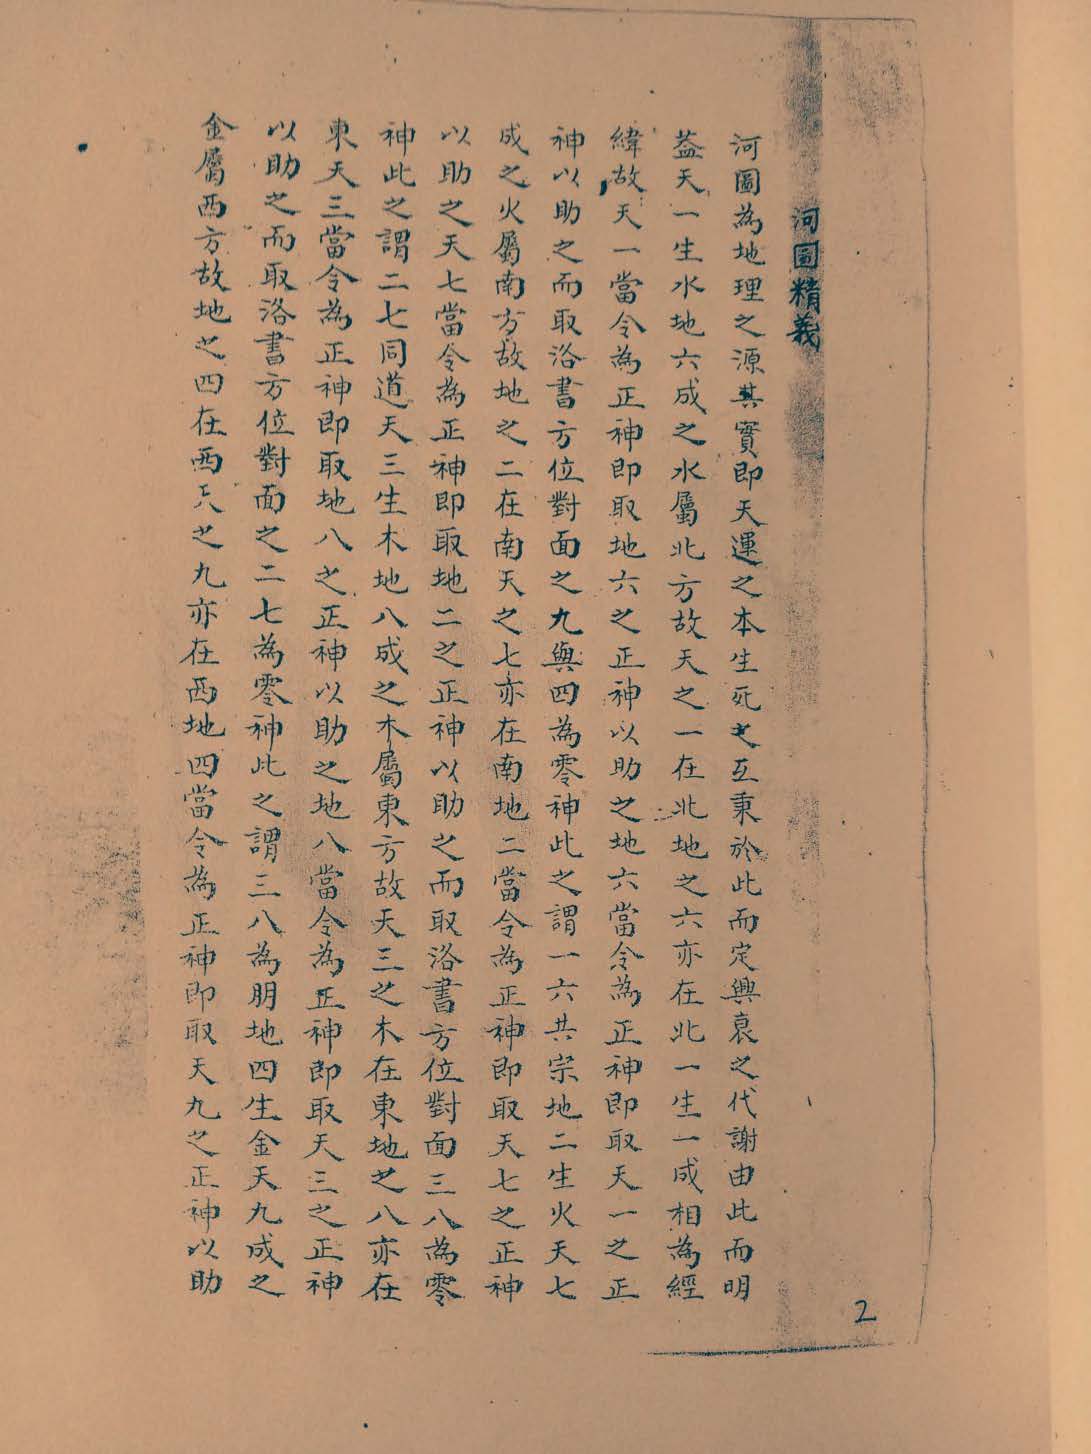 河圖精義
河圖為地理之源其實即天運之本生死之互秉於此而定興衰之代謝由此而明
蓋天一生水地六成之水屬北方故天之一在北地之六亦在北一生一成相為經
緯故天一當令為正神即取地六之正神以助之地六當令為正神即取天一之正
神以助之而取洛書方位對面之九與四為零神此之謂一六共宗地二生火天七
成之火屬南方故地之二在南天之七亦在南地二當令為正神即取天七之正神
以助之天七當令為正神即取地二之正神以助之而取洛書方位對面三八為零
神此之謂二七同道天三生木地八成之木屬東方故天三之木在東地之八亦在
東天三當令為正神即取地八之正神以助之地八當令為正神即取天三之正神
以助之而取洛書方位對面之二七為零神此之謂三八為朋地四生金天九成之
金屬西方故地之四在西天之九亦在西地四當令為正神即取天九之正神以助
2